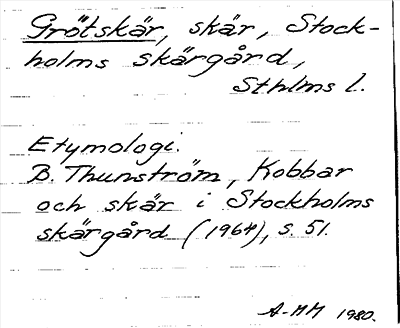 Grötskär, skär, Stock-
holms skärgård,
Sthlms l.
Etymologi.
B. Thunström, Kobbar
och skär i Stockholms
skärgård (1964), s. 51.
A-MM 1980.